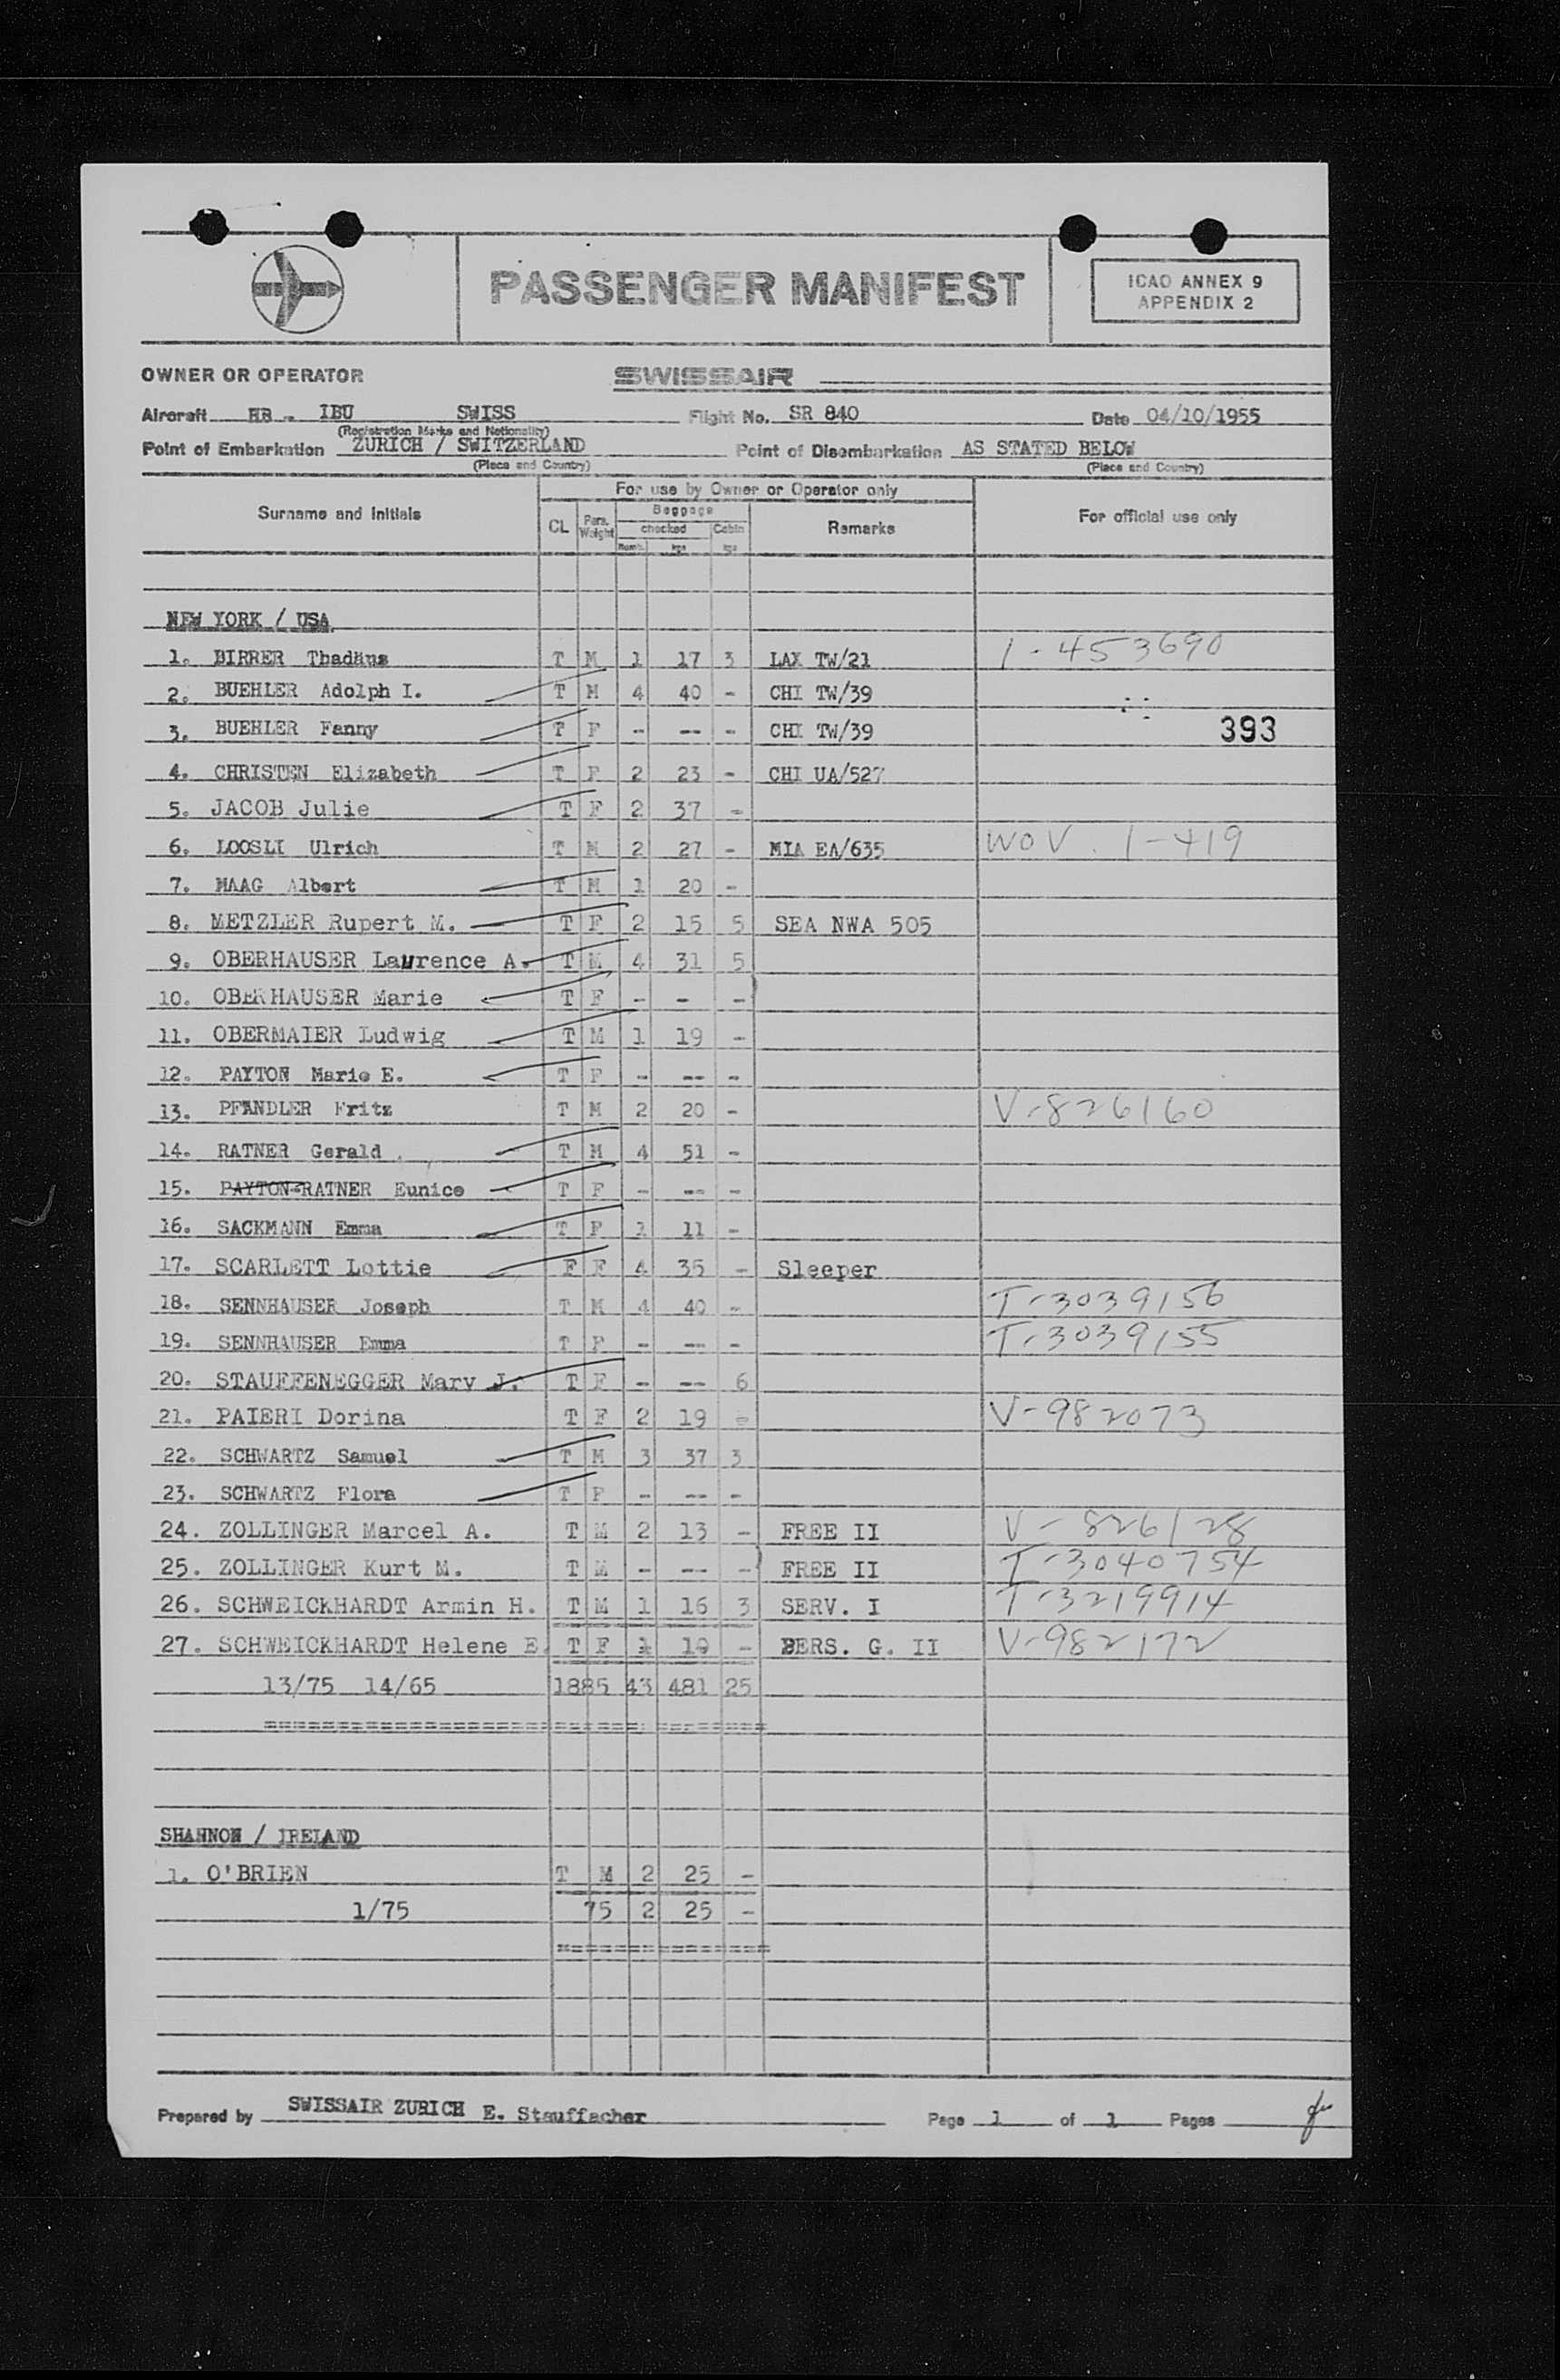 PASSENGER MANIFEST
ICAO ANNEX 9
APPENDIX 2
OWNER OR OPERATOR SWISSAIR
Aircraft HB - IBU SWISS Flight No. SR 840 Date 04/10/1955
(Registration Marks and Nationality)
Point of Embarkation ZURICH / SWITZERLAND Point of Disembarkation AS STATED BELOW
(Place and Country) (Place and Country)
For use by Owner or Operator only
Surname and Initials CL Pers. Weight Baggage checked Cabin Remarks For official use only
Numb. kgs kgs
NEW YORK / USA
1. BIRRER Thadäus T M 1 17 3 LAX TW/21 1-453690
2. BUEHLER Adolph I. T M 4 40 - CHI TW/39
3. BUEHLER Fanny T F - -- - CHI TW/39 393
4. CHRISTEN Elizabeth T F 2 23 - CHI UA/527
5. JACOB Julie T F 2 37 -
6. LOOSLI Ulrich T M 2 27 - MIA EA/635 WOV. 1-419
7. MAAG Albert T M 1 20 -
8. METZLER Rupert M. T F 2 15 5 SEA NWA 505
9. OBERHAUSER Laurence A. T M 4 31 5
10. OBERHAUSER Marie T F - - -
11. OBERMAIER Ludwig T M 1 19 -
12. PAYTON Marie E. T F - -- -
13. PFANDLER Fritz T M 2 20 - V-826160
14. RATNER Gerald T M 4 51 -
15. PAYTON-RATNER Eunice T F - -- -
16. SACKMANN Emma T F 1 11 -
17. SCARLETT Lottie F F 4 35 - Sleeper
18. SENNHAUSER Joseph T M 4 40 - T-3039156
19. SENNHAUSER Emma T F - -- - T-3039155
20. STAUFFENEGGER Mary J. T F - -- 6
21. PAIERI Dorina T F 2 19 - V-982073
22. SCHWARTZ Samuel T M 3 37 3
23. SCHWARTZ Flora T F - -- -
24. ZOLLINGER Marcel A. T M 2 13 - FREE II V-826128
25. ZOLLINGER Kurt M. T M - -- - FREE II T-3040754
26. SCHWEICKHARDT Armin H. T M 1 16 3 SERV. I T-3219914
27. SCHWEICKHARDT Helene E. T F 1 10 - PERS. G. II V-982172
13/75 14/65 1885 43 481 25
SHANNON / IRELAND
1. O'BRIEN T M 2 25 -
1/75 75 2 25 -
Prepared by SWISSAIR ZURICH E. Stauffacher Page 1 of 1 Pages